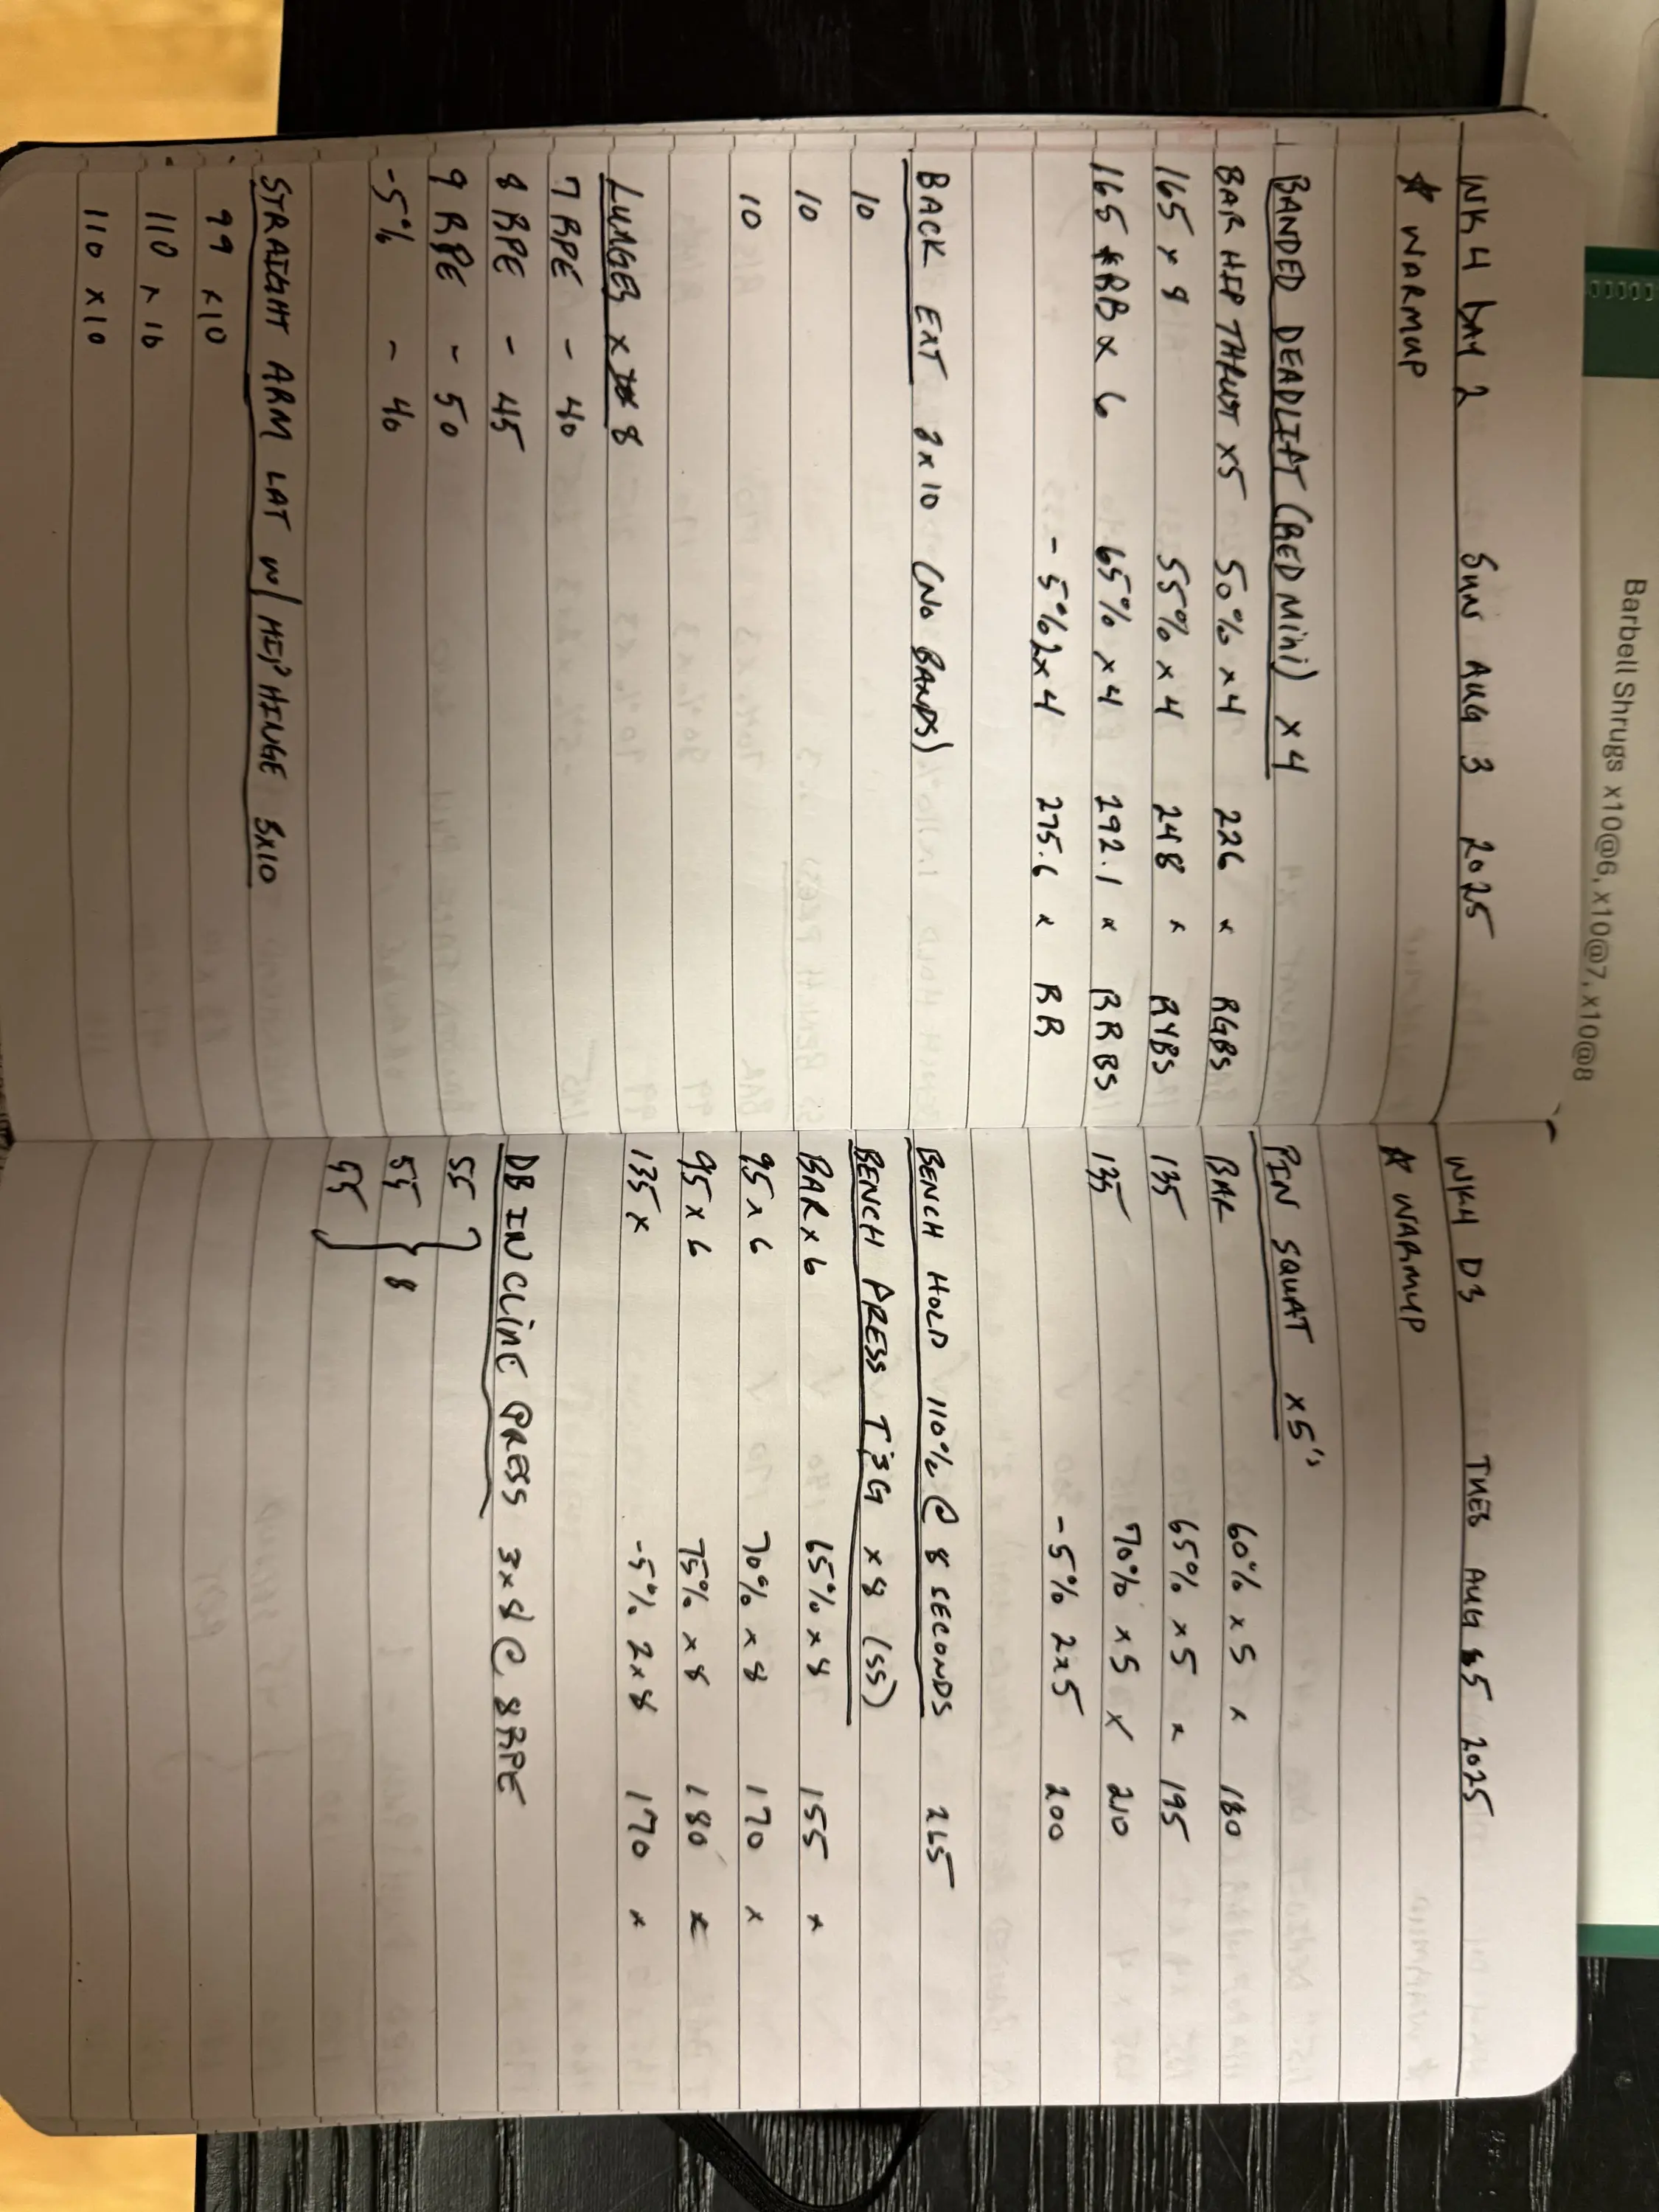 Barbell Shrugs x10@6, x10@7, x10@8
WK 4 DAY 2 SUN AUG 3 2025
* WARMUP
BANDED DEADLIFT (RED Mini) x 4
BAR HIP THRUST x5 50% x 4 226 x RGBS
165 x 8 55% x 4 248 x RYBS
165 RB x 6 65% x 4 292.1 x RRBS
-5% 2x4 275.6 x RB
BACK EXT 3x10 (NO BANDS)
10
10
10
LUNGES x 8
7 RPE - 40
8 RPE - 45
9 RPE - 50
-5% - 40
STRAIGHT ARM LAT w/ HIP HINGE 3x10
99 x10
110 x 10
110 x10
WK4 D3 TUES AUG 5 2025
* WARMUP
PIN SQUAT x5's
BAR 60% x5 x 180
135 65% x5 x 195
135 70% x5 x 210
-5% 2x5 200
BENCH HOLD 110% @ 8 SECONDS 265
BENCH PRESS T3G x 8 (SS)
BAR x 6 65% x 8 155 x
95 x 6 70% x 8 170 x
95 x 6 75% x 8 180 x
135 x -5% 2x8 170 x
DB INCLINE PRESS 3x8 @ 8 RPE
55
55 } 8
55